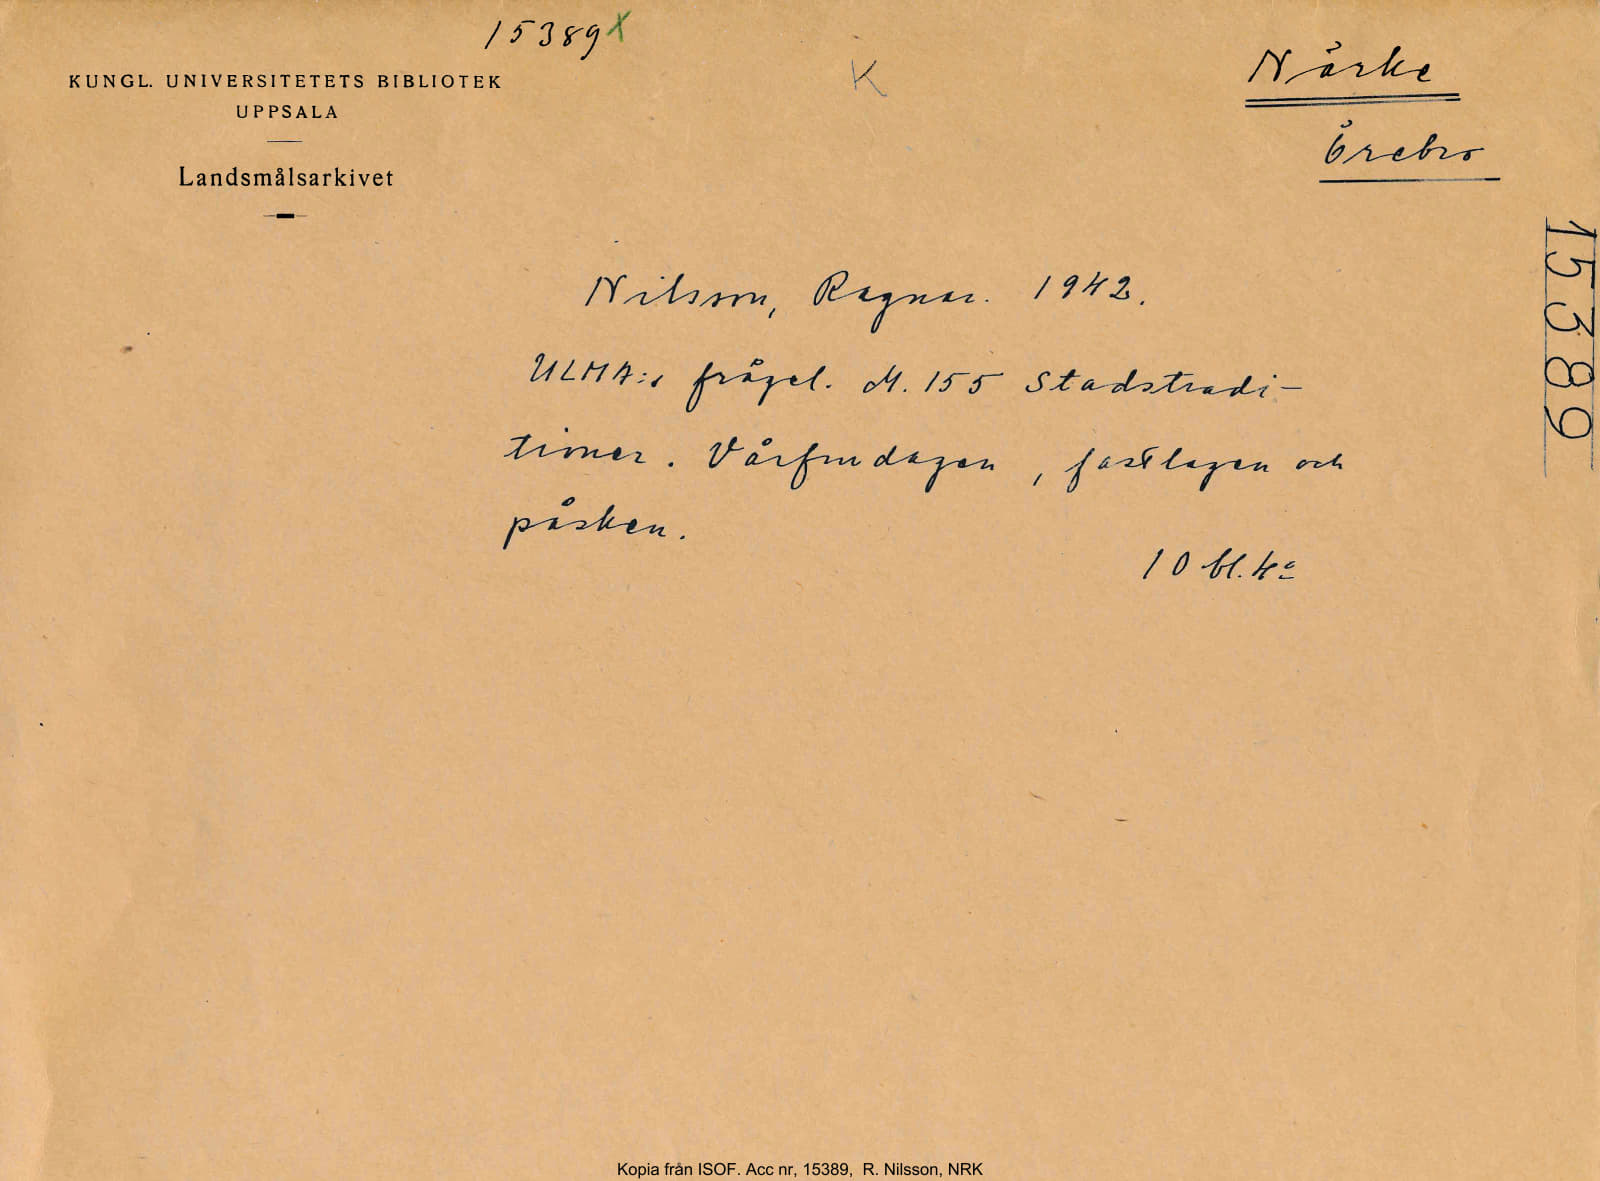 15389 x
KUNGL. UNIVERSITETETS BIBLIOTEK
UPPSALA
Landsmålsarkivet
K
Närke
Örebro
15389
Nilsson, Ragnar. 1942.
ULMA:s frågel. M. 155 Stadstradi-
tioner. Vårfrudagen, fastlagen och
påsken.
10 bl. 4o
Kopia från ISOF. Acc nr, 15389, R. Nilsson, NRK